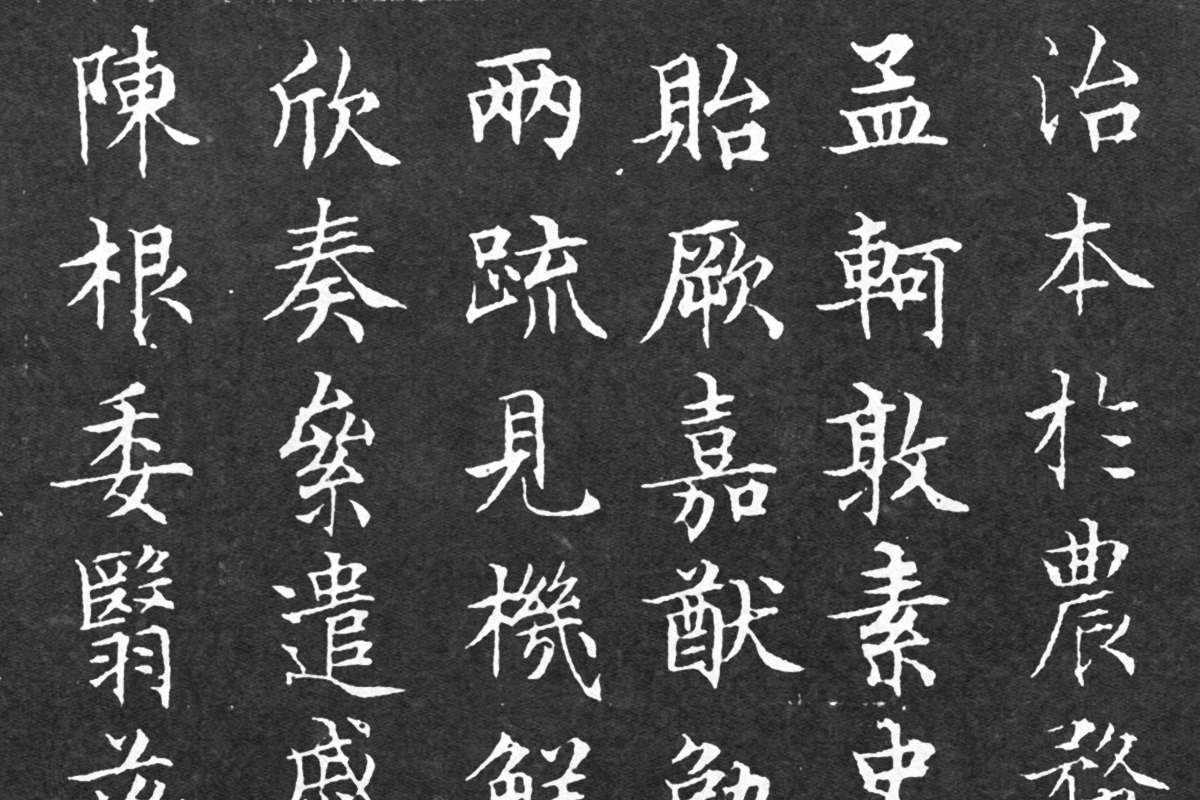 治本於農務
孟軻敦素史
貽厥嘉猷勉
兩疏見機
欣奏累遣慼
陳根委翳落